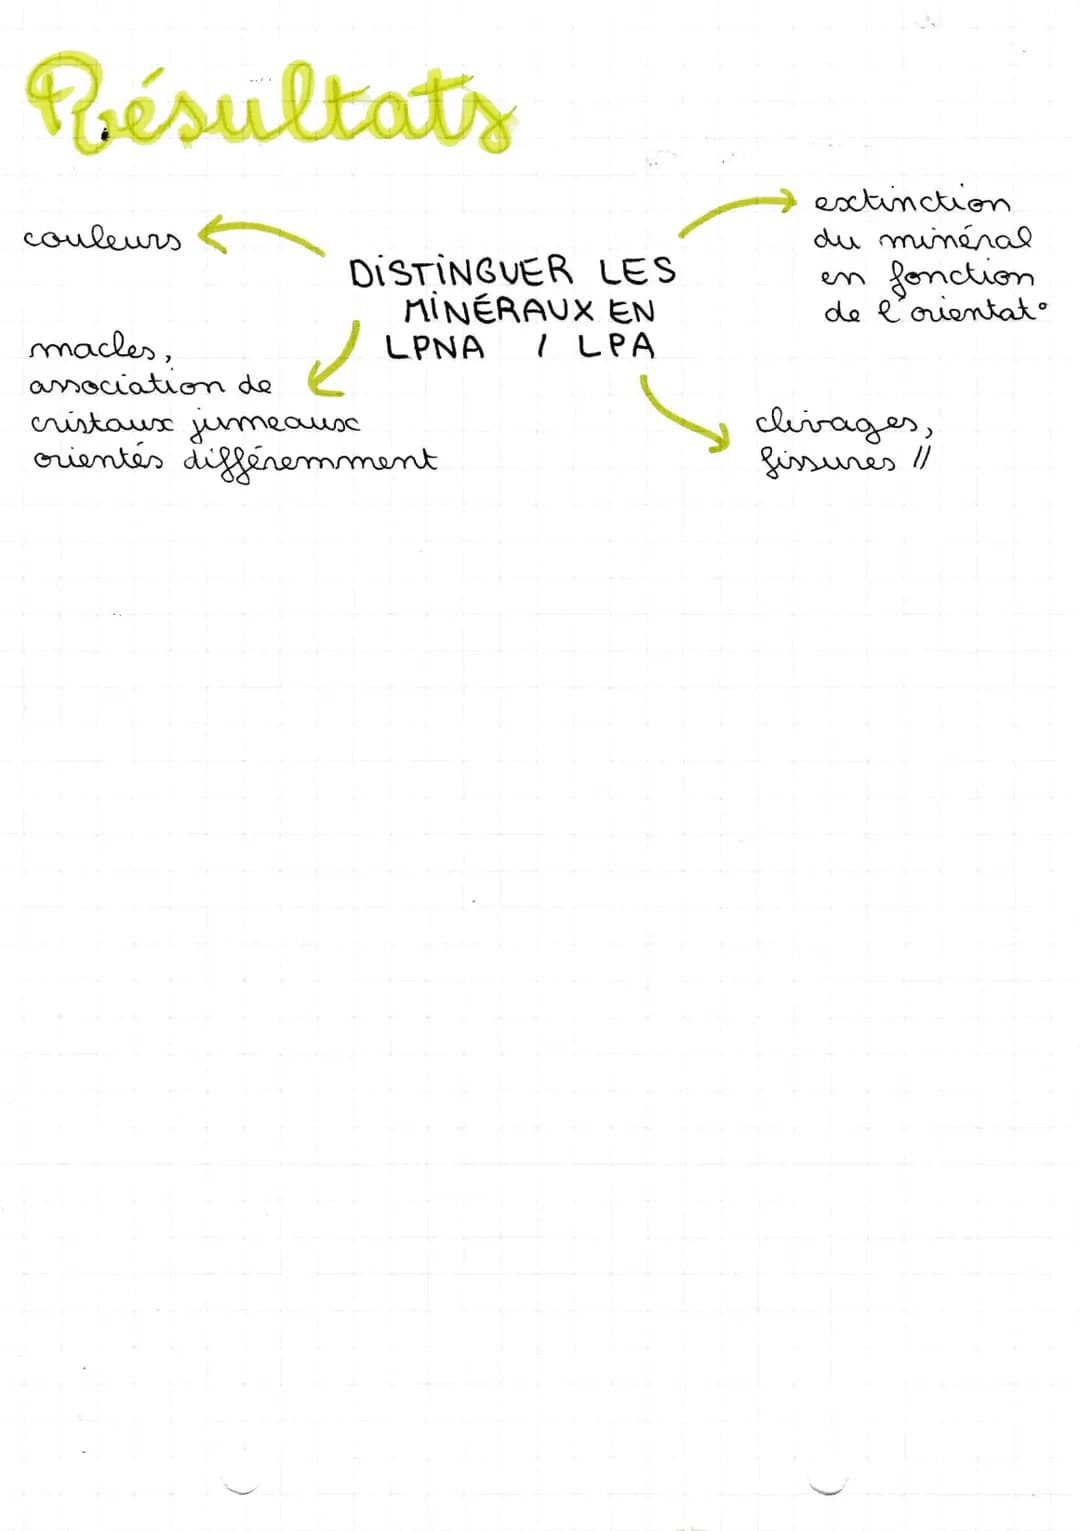 Résultats
couleurs
DISTINGUER LES
MINÉRAUX EN
LPNA / LPA
extinction
du minéral
en fonction
de l'orientat°
macles,
association de
cristaux jumeaux
orientés différemment
clivages,
fissures //